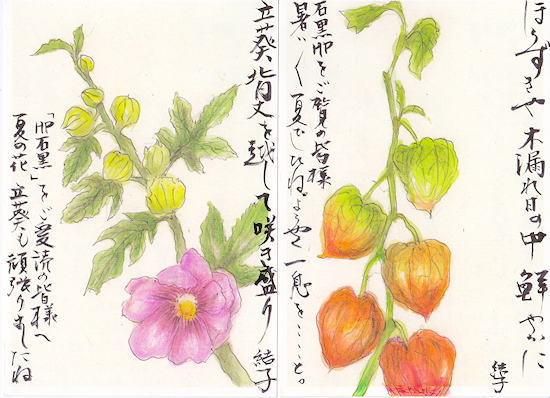 ほうずきや木漏れ日の中鮮やかに
結子
石黒邸をご覧の皆様
暑い夏でしたね。ようやく一息を・・・と。
立葵背丈を越して咲き盛り
結子
「石黒」をご愛読の皆様へ
夏の花 立葵も頑張りましたね